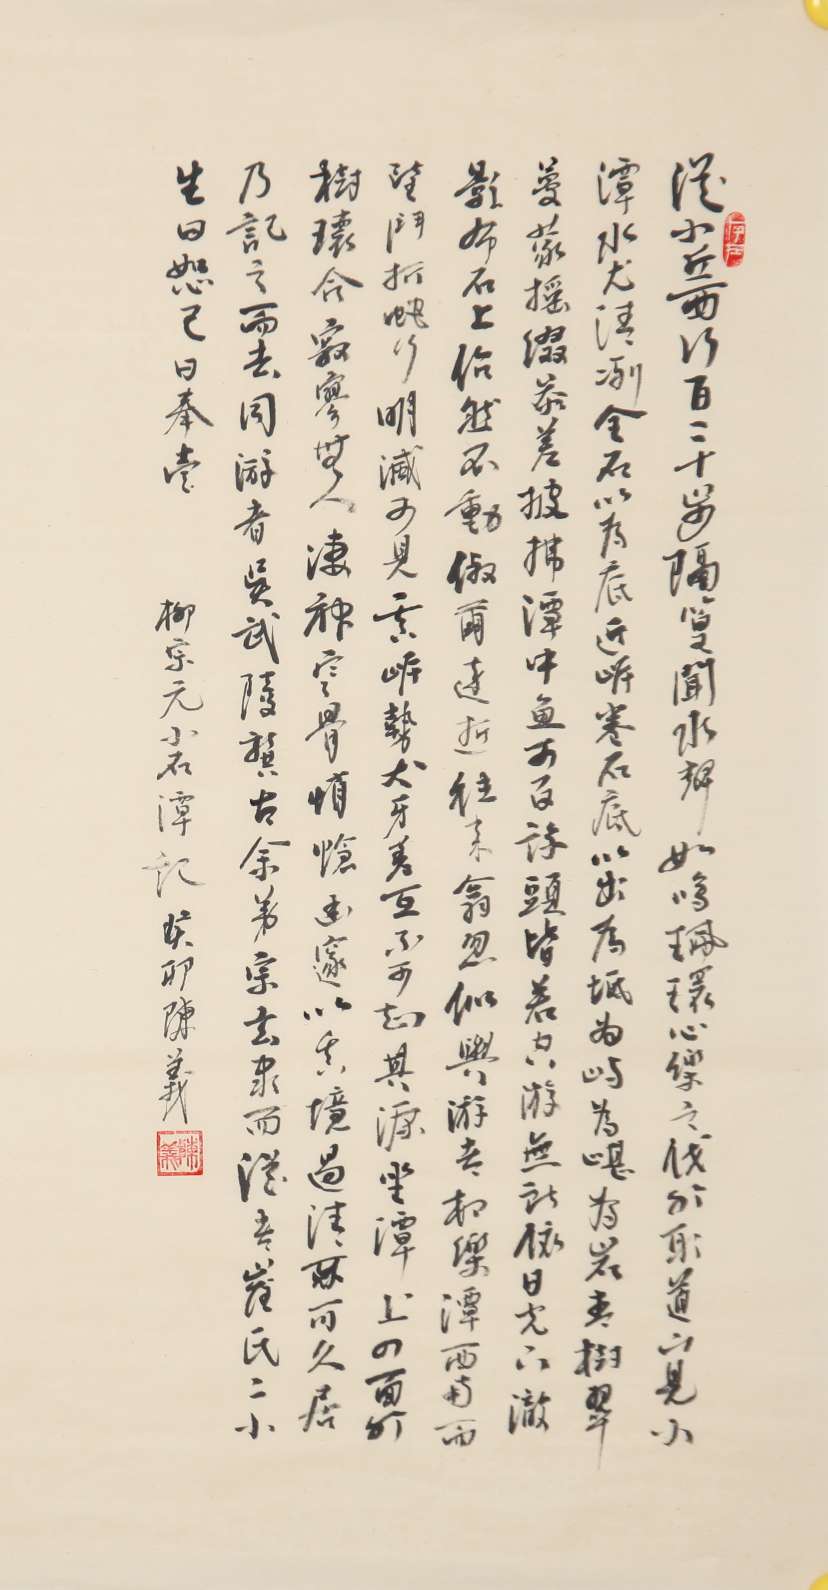 從小丘西行百二十步隔篁聞水聲如鳴珮環心樂之伐竹取道下見小
潭水尤清冽全石以為底近岸卷石底以出為坻為屿為嵁為岩青樹翠
蔓蒙搖綴參差披拂潭中魚可百許頭皆若空游無所依日光下澈
影布石上佁然不動俶爾遠逝往來翕忽似與游者相樂潭西南而
望鬥折蛇行明滅可見其岸勢犬牙差互不可知其源坐潭上四面竹
樹環合寂寥無人凄神寒骨悄愴幽邃以其境過清不可久居
乃記之而去同游者吳武陵龔古余弟宗玄隸而從者崔氏二小
生曰恕己曰奉壹
柳宗元小石潭記 癸卯陳義
陳義